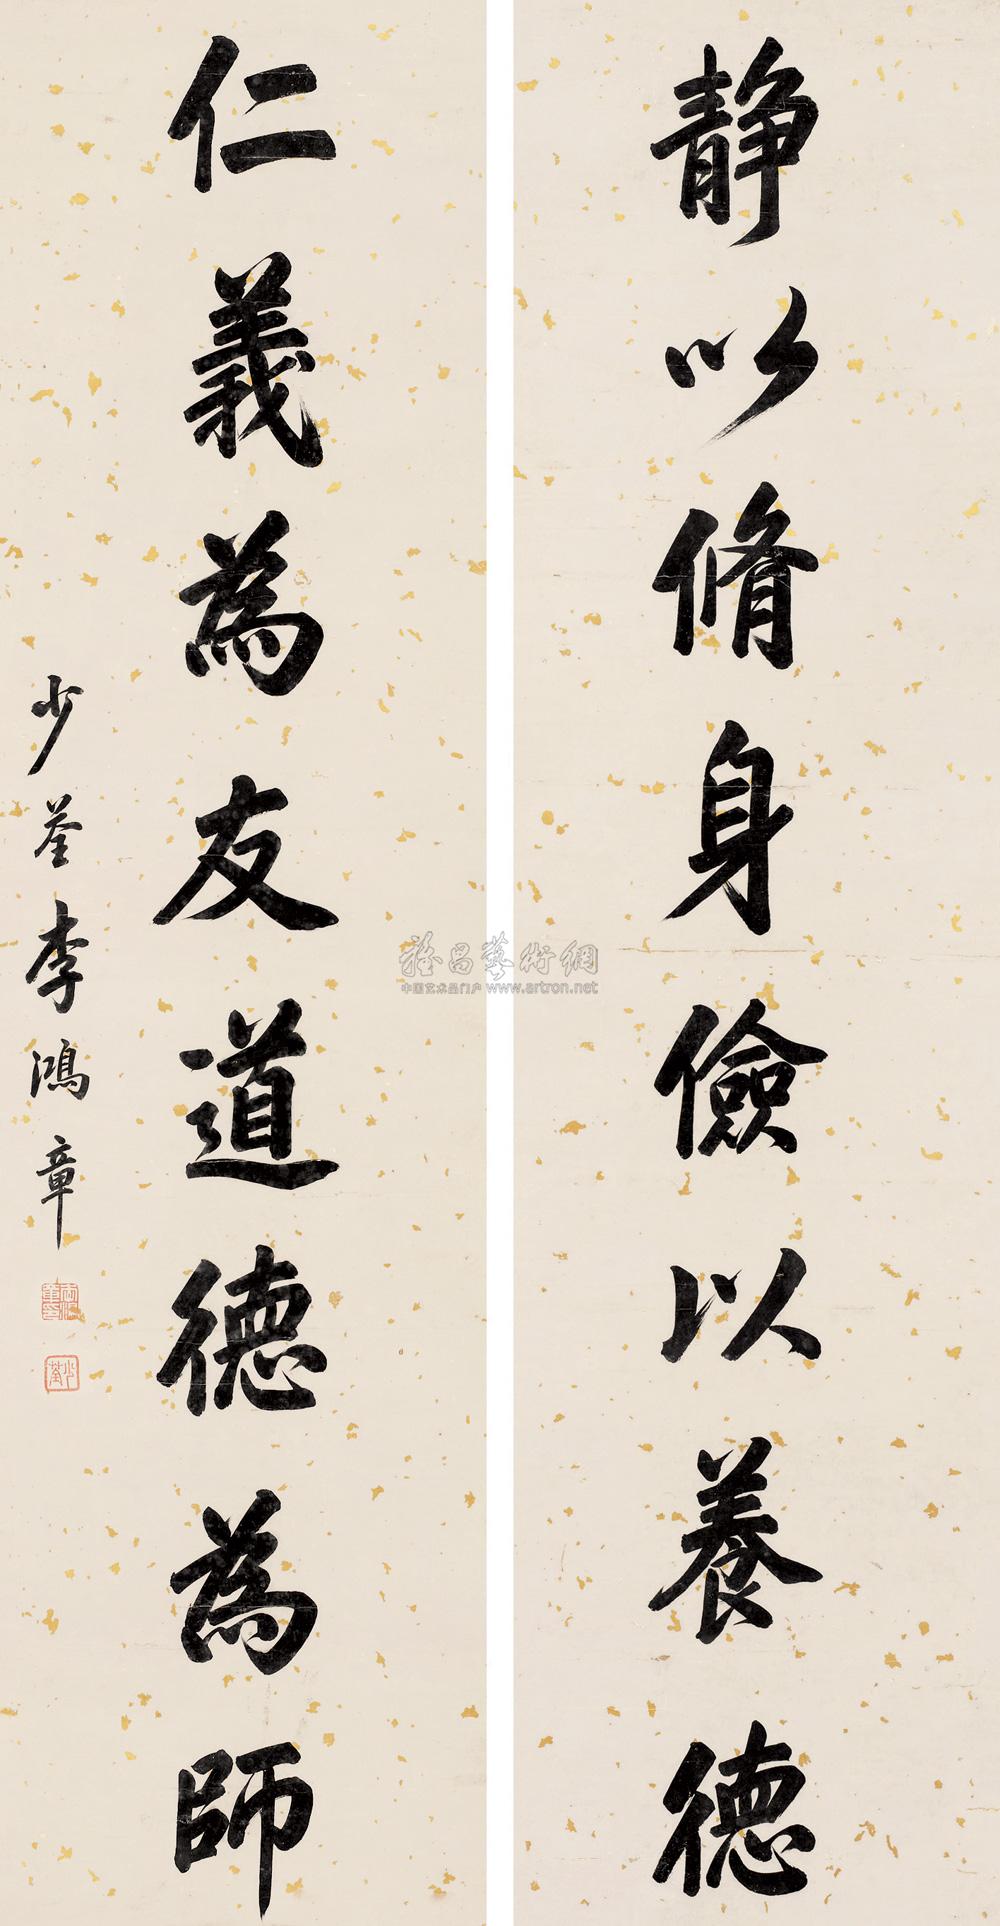 静以脩身儉以養德
仁義為友道德為師
少荃李鴻章
雅昌藝術網
中国艺术品门户 www.artron.net
少荃